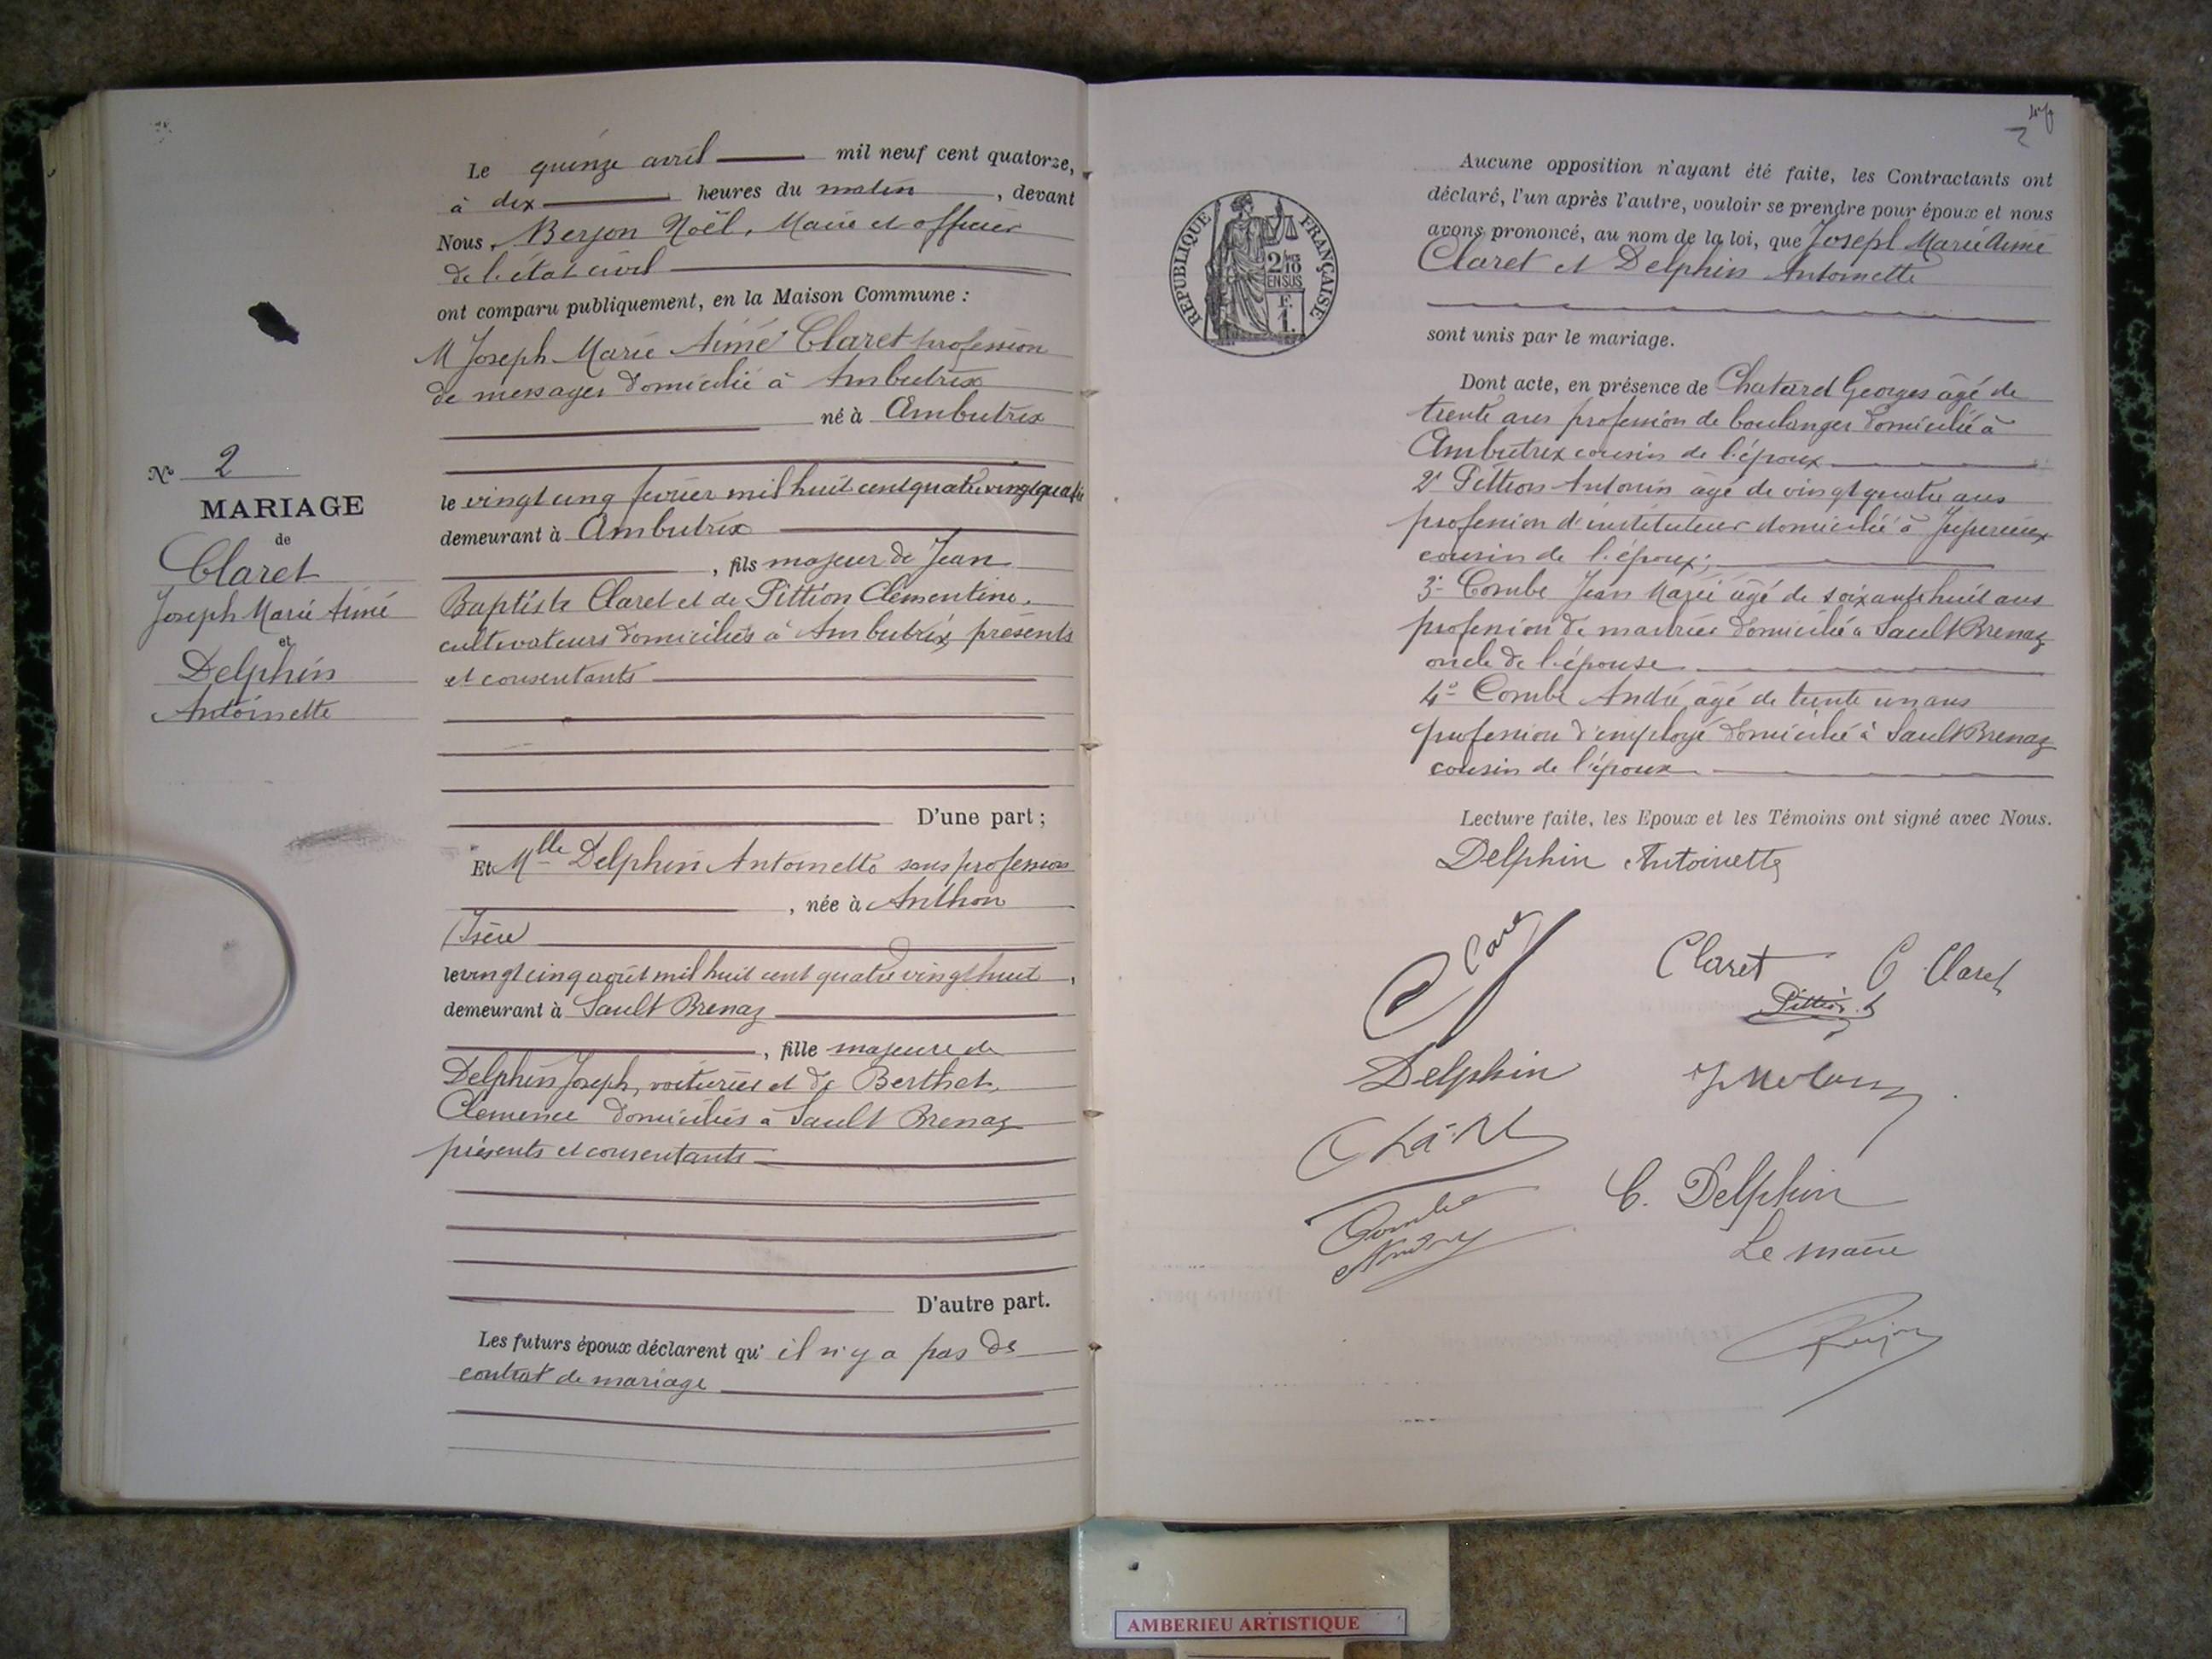 Le quinze avril mil neuf cent quatorze,
à dix heures du matin, devant
Nous, Berjon Noël, Maire et officier
de l'état civil
ont comparu publiquement, en la Maison Commune :
M Joseph Marie Aimé Claret profession
de messager domicilié à Ambutrix
né à Ambutrix
le vingt cinq fevrier mil huit cent quatre vingt quatre
demeurant à Ambutrix
, fils majeur de Jean
Baptiste Claret et de Pittion Clementine,
cultivateurs domiciliés à Ambutrix presents
et consentants
D'une part ;
Et Mlle Delphin Antoinette sans profession
, née à Anthon
(Isère
le vingt cinq août mil huit cent quatre vingt huit,
demeurant à Sault Brenaz
, fille majeure de
Delphin Joseph, voiturier et de Berthet
Clemence domiciliés à Sault Brenaz
présents et consentants
D'autre part.
Les futurs époux déclarent qu' il n'y a pas de
contrat de mariage
N° 2
MARIAGE
de
Claret
Joseph Marie Aimé
et
Delphin
Antoinette
2
REPUBLIQUE FRANÇAISE
2/10
EN SUS
F.
1.
Aucune opposition n'ayant été faite, les Contractants ont
déclaré, l'un après l'autre, vouloir se prendre pour époux et nous
avons prononcé, au nom de la loi, que Joseph Marie Aimé
Claret et Delphin Antoinette
sont unis par le mariage.
Dont acte, en présence de Chatard Georges âgé de
trente ans profession de boulanger domicilié à
Ambutrix cousin de l'époux
2° Pittion Antonin âgé de vingt quatre ans
profession d'instituteur domicilié à Jujurieux
cousin de l'époux;
3° Combe Jean Marie âgé de soixante huit ans
profession de domicilié à Sault Brenaz
oncle de l'épouse
4° Combe André âgé de trente un ans
profession d'employé domicilié à Sault Brenaz
cousin de l'époux
Lecture faite, les Epoux et les Témoins ont signé avec Nous.
Delphin Antoinette
Claret C Claret
Pittion
Delphin
C. Delphin
Combe
André
Le maire
Berjon
AMBERIEU ARTISTIQUE